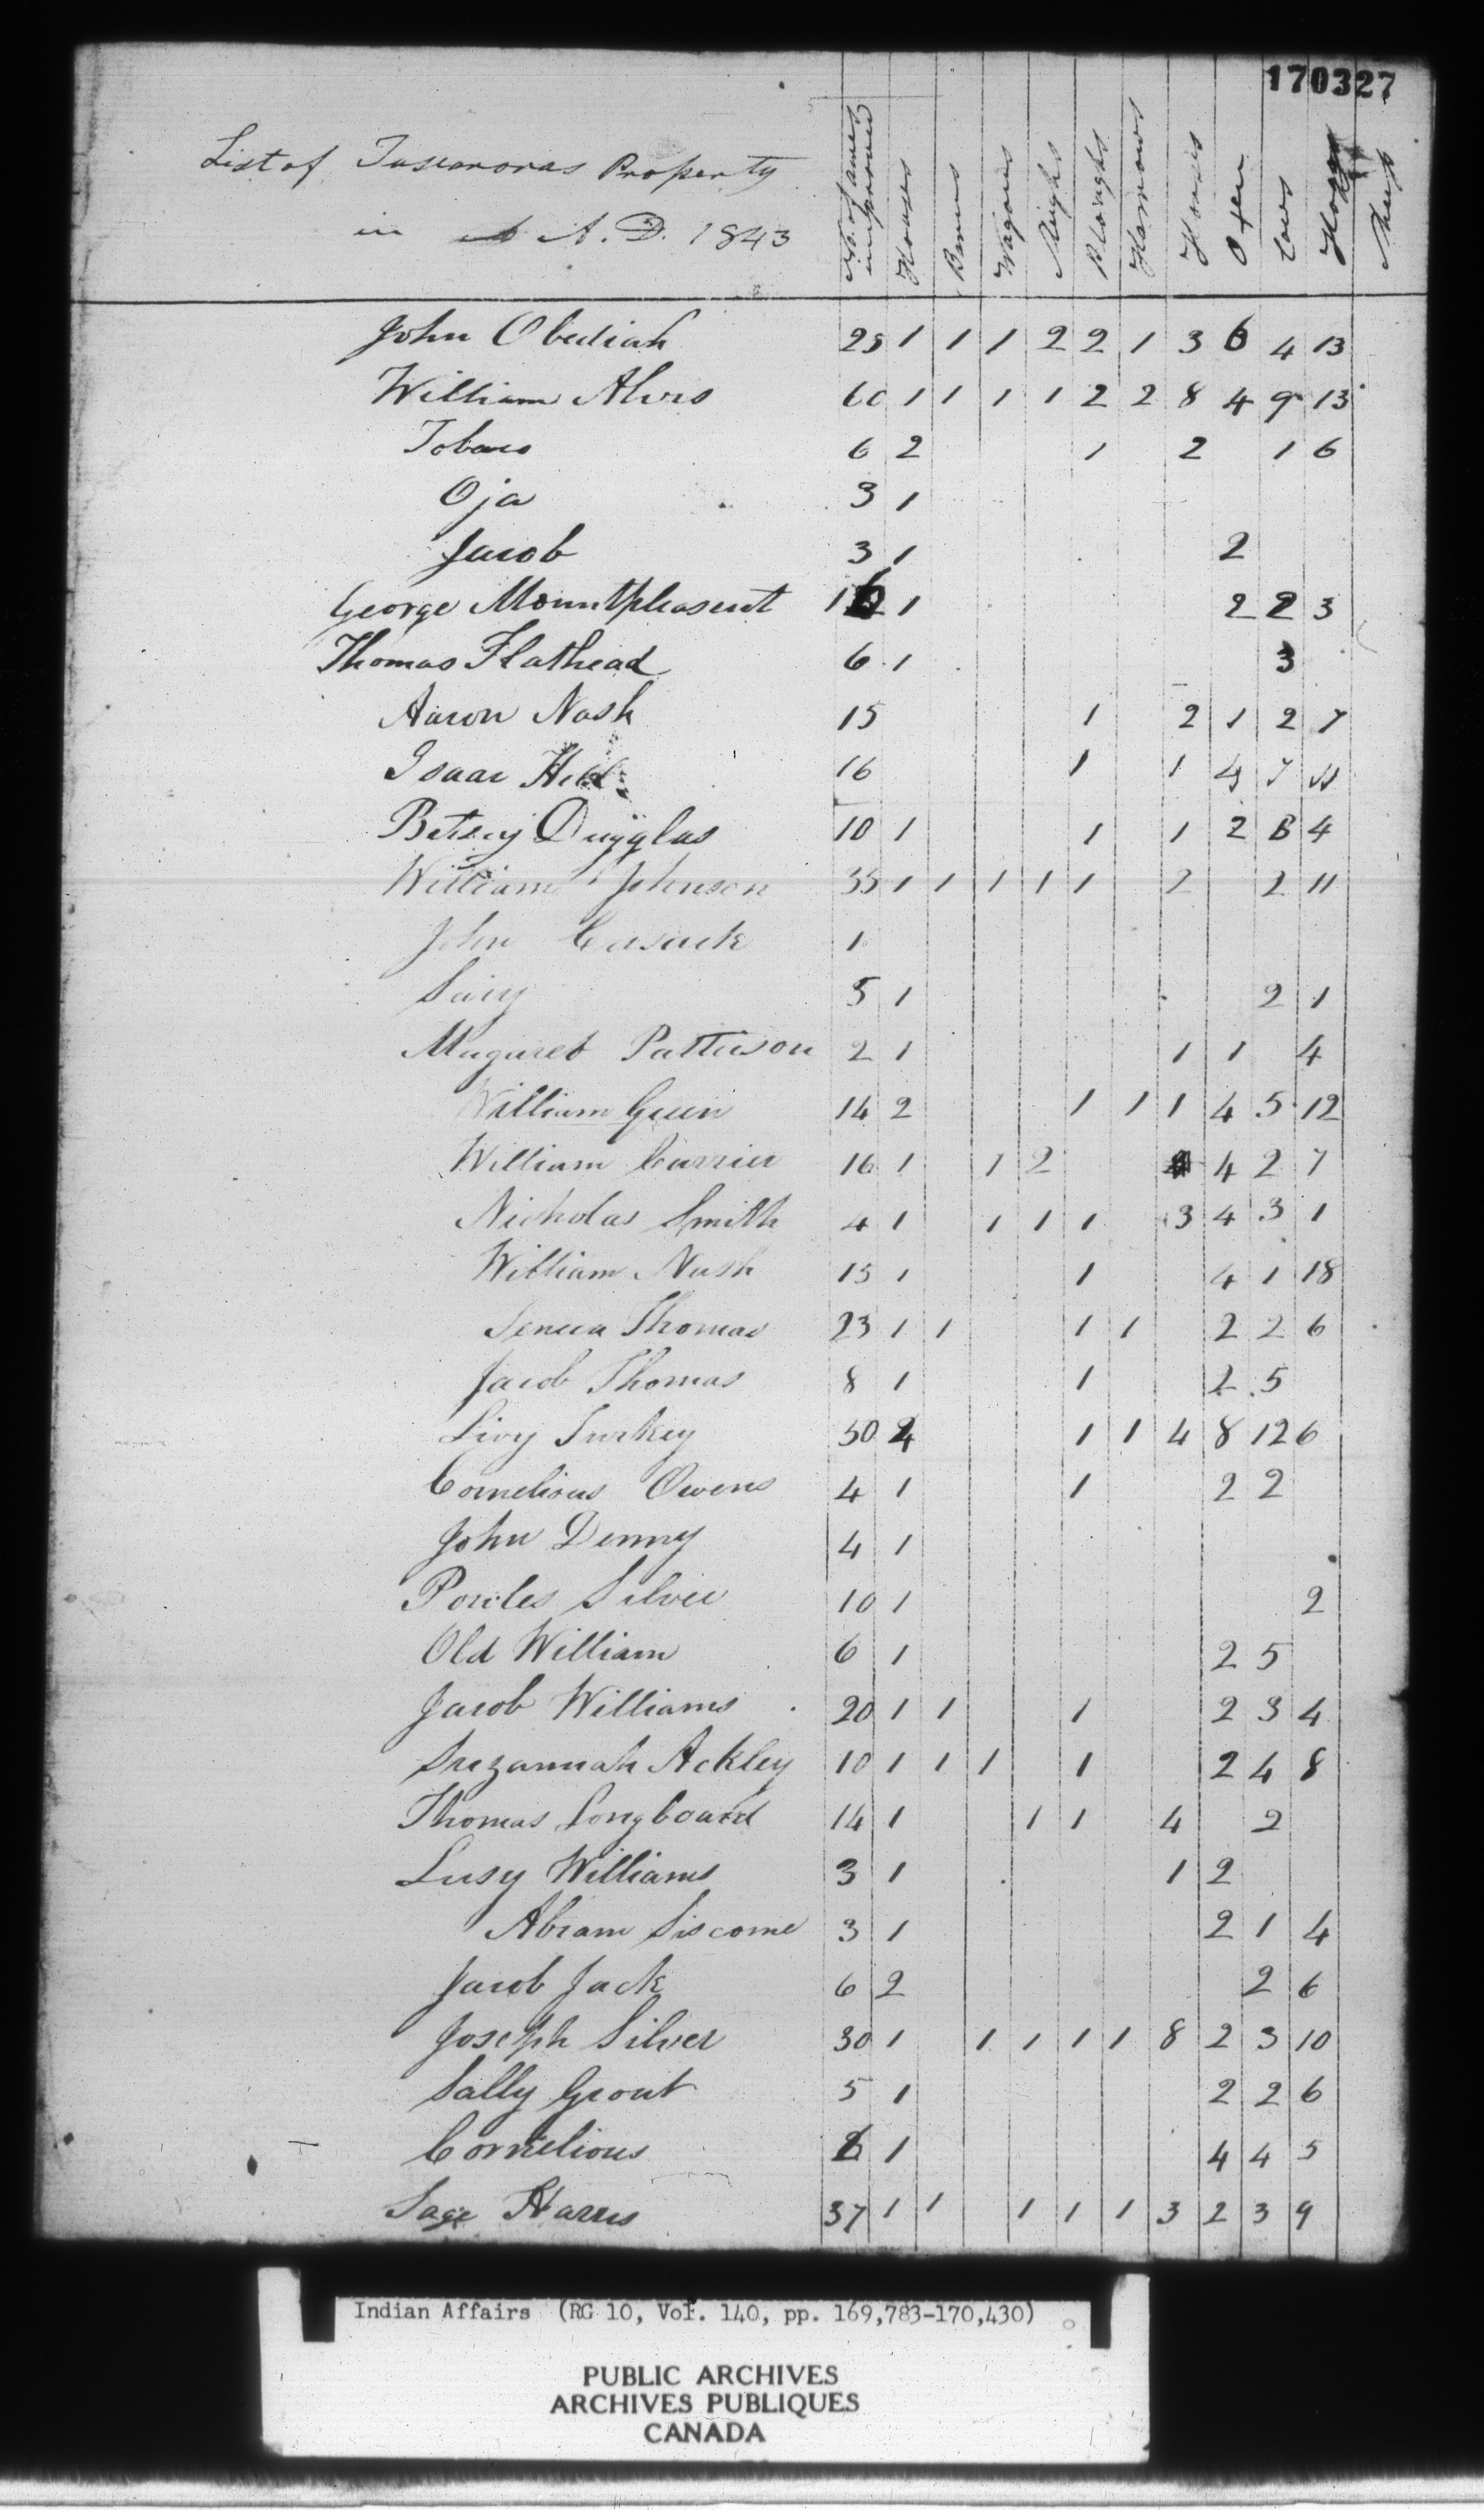 170327
List of Tuscaroras Property
in A.D. 1843
No. of acres improved Houses Barns Wagons Sleighs Ploughs Harrows Horses Oxen Cows Hogs Sheep
John Obediah 25 1 1 1 2 2 1 3 6 4 13
William Alvis 60 1 1 1 1 2 2 8 4 9 13
Tobais 6 2 1 2 1 6
Oja 3 1
Jacob 3 1 2
George Mountpleasent 1 2 2 3
Thomas Flathead 6 1 3
Aaron Nash 15 1 2 1 2 7
Isaac Hill 16 1 1 4 7 11
Betsey Dugglas 10 1 1 1 2 6 4
William Johnson 35 1 1 1 1 1 2 2 11
John Cusack 1
Sairy 5 1 2 1
Magaret Patterson 2 1 1 1 4
William Green 14 2 1 1 1 4 5 12
William Carrier 16 1 1 2 4 2 7
Nicholas Smith 4 1 1 1 1 3 4 3 1
William Nash 15 1 1 4 1 18
Seneca Thomas 23 1 1 1 1 2 2 6
Jacob Thomas 8 1 1 2 5
Livy Turkey 50 4 1 1 4 8 12 6
Cornelious Owens 4 1 1 2 2
John Denny 4 1
Powles Silver 10 1 2
Old William 6 1 2 5
Jacob Williams 20 1 1 1 2 3 4
Suzannah Ackley 10 1 1 1 1 2 4 8
Thomas Longboard 14 1 1 1 4 2
Lusy Williams 3 1 1 2
Abram Siscome 3 1 2 1 4
Jacob Jack 6 2 2 6
Joseph Silver 30 1 1 1 1 1 8 2 3 10
Sally Grout 5 1 2 2 6
Cornelious 1 4 4 5
Sage Harris 37 1 1 1 1 1 3 2 3 9
Indian Affairs (RG 10, Vol. 140, pp. 169,783-170,430)
PUBLIC ARCHIVES
ARCHIVES PUBLIQUES
CANADA